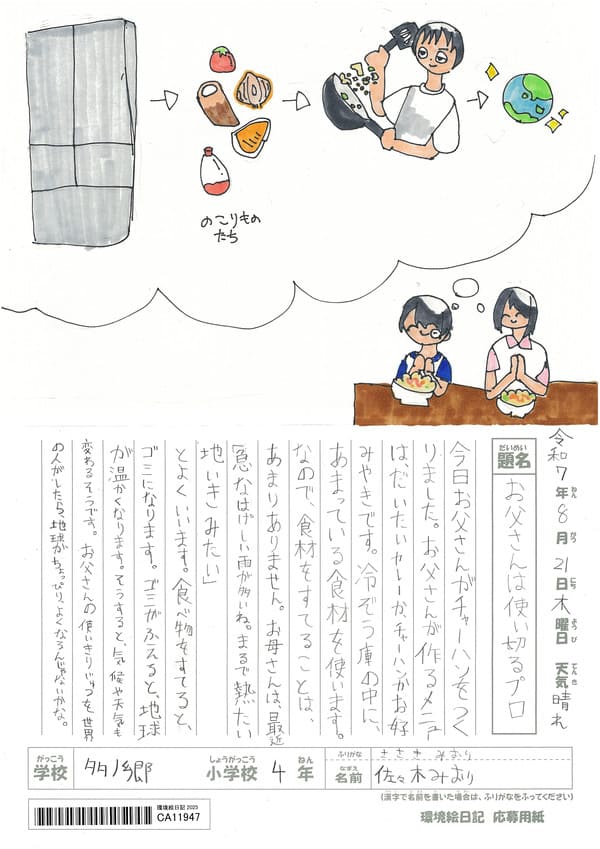 のこりもの
たち
令和7年8月21日木曜日 天気晴れ
ねん がつ にち ようび てんき
だいめい
題名
お父さんは使い切るプロ
今日お父さんがチャーハンをつく
りました。お父さんが作るメニュー
は、だいたいカレーか、チャーハンかお好
みやきです。冷ぞう庫の中に、
あまっている食材を使います。
なので、食材をすてることは、
あまりありません。お母さんは、最近
「急なはげしい雨が多いね。まるで熱たい
地いきみたい」
とよくいいます。食べ物をすてると、
ゴミになります。ゴミがふえると、地球
が温かくなります。そうすると、気候や天気も
変わるそうです。お父さんの使いきりじゅつを世界
の人がしたら、地球がちょっぴりよくなるんじゃないかな。
がっこう
学校
多ノ郷
しょうがっこう ねん
小学校 4年
ふりがな
ささき みおり
なまえ
名前
佐々木みおり
(漢字で名前を書いた場合は、ふりがなをふってください)
環境絵日記 2025
CA11947
環境絵日記 応募用紙